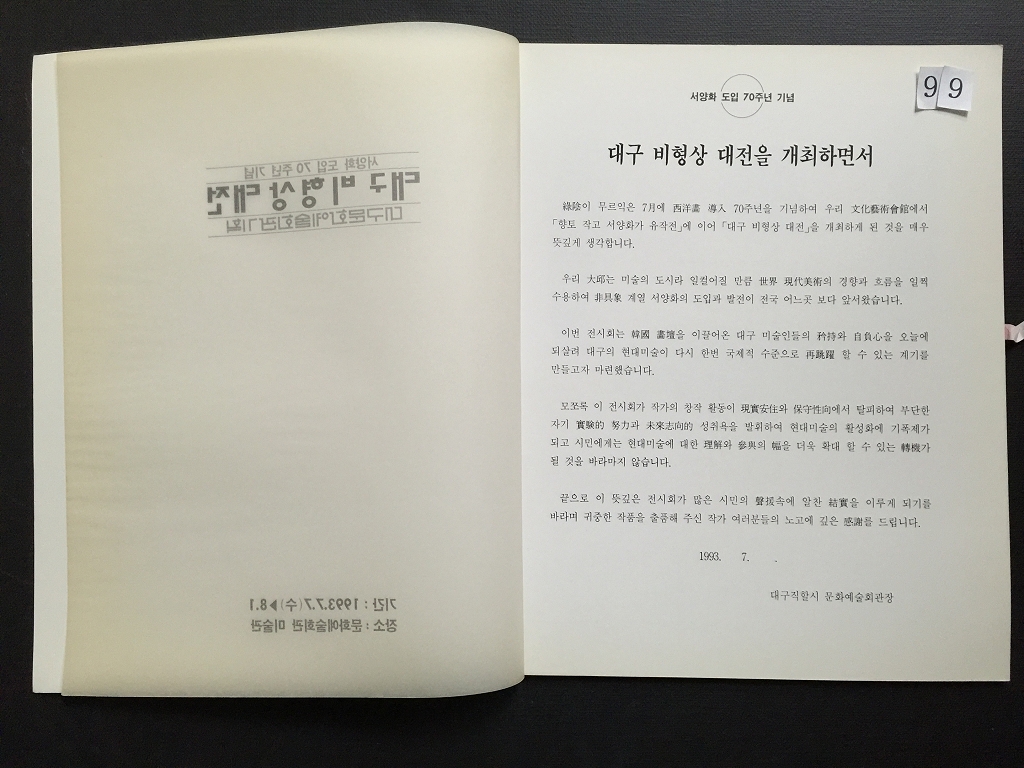 서양화 도입 70 주년 기념
대구 비형상 대전
대구문화예술회관기획
기간 : 1993.7.7(수)▶8.1
장소 : 문화예술회관 미술관
99
서양화 도입 70주년 기념
대구 비형상 대전을 개최하면서
綠陰이 무르익은 7月에 西洋畵 導入 70주년을 기념하여 우리 文化藝術會館에서
「향토 작고 서양화가 유작전」에 이어 「대구 비형상 대전」을 개최하게 된 것을 매우
뜻깊게 생각합니다.
우리 大邱는 미술의 도시라 일컬어질 만큼 世界 現代美術의 경향과 흐름을 일찍
수용하여 非具象 계열 서양화의 도입과 발전이 전국 어느곳 보다 앞서왔습니다.
이번 전시회는 韓國 畵壇을 이끌어온 대구 미술인들의 矜持와 自負心을 오늘에
되살려 대구의 현대미술이 다시 한번 국제적 수준으로 再跳躍 할 수 있는 계기를
만들고자 마련했습니다.
모쪼록 이 전시회가 작가의 창작 활동이 現實安住와 保守性向에서 탈피하여 부단한
자기 實驗的 努力과 未來志向的 성취욕을 발휘하여 현대미술의 활성화에 기폭제가
되고 시민에게는 현대미술에 대한 理解와 參與의 幅을 더욱 확대 할 수 있는 轉機가
될 것을 바라마지 않습니다.
끝으로 이 뜻깊은 전시회가 많은 시민의 聲援속에 알찬 結實을 이루게 되기를
바라며 귀중한 작품을 출품해 주신 작가 여러분들의 노고에 깊은 感謝를 드립니다.
1993. 7. .
대구직할시 문화예술회관장